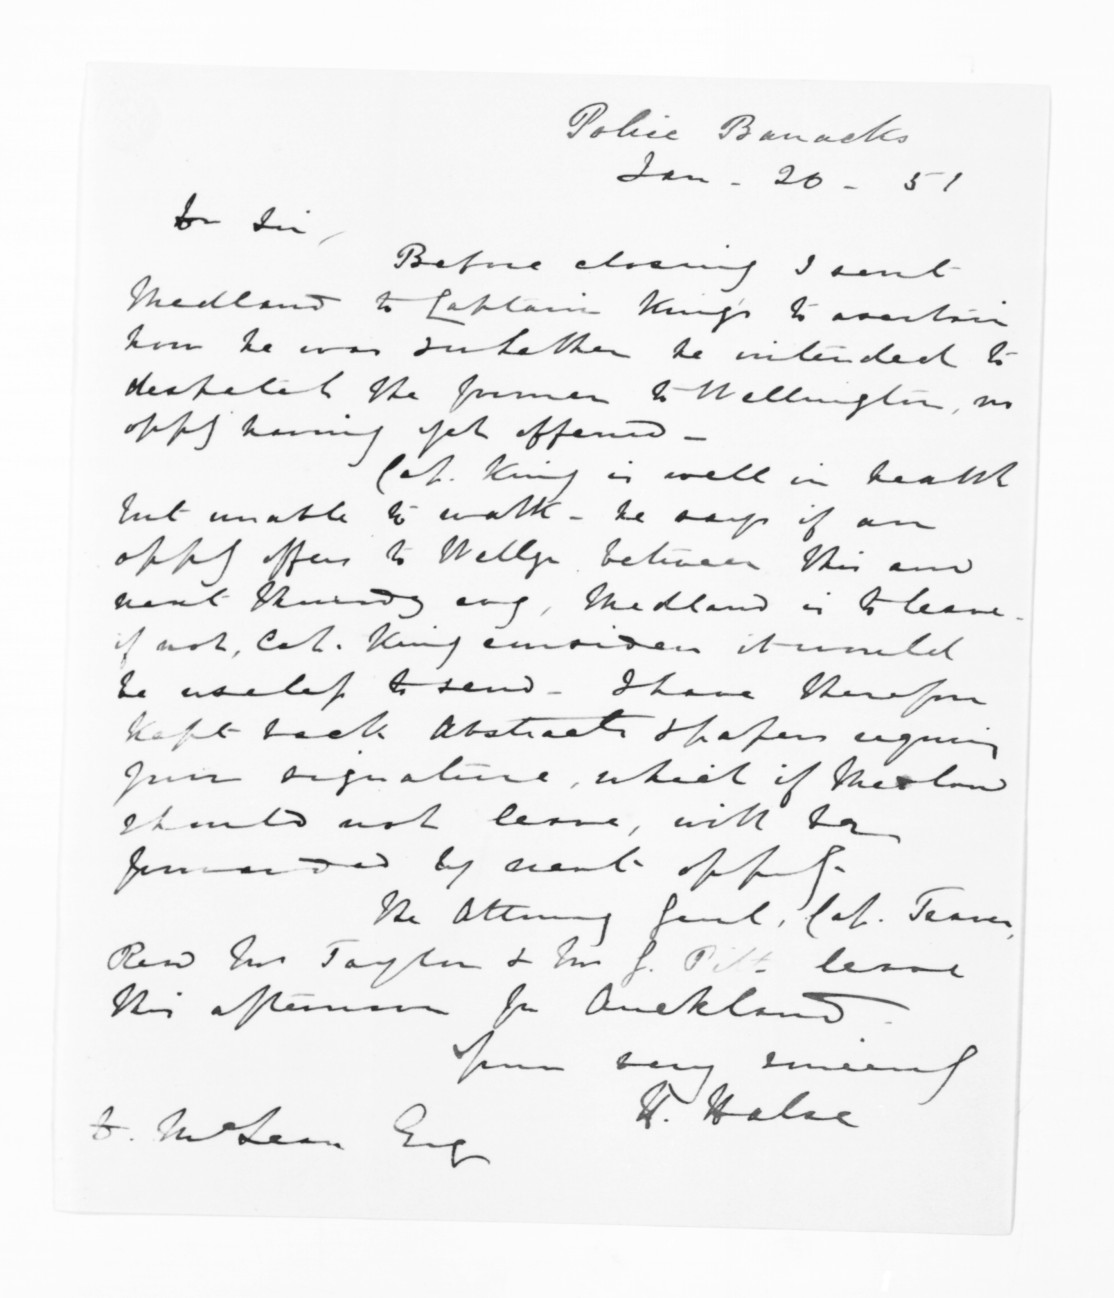 Police Barracks
Jan - 20 - 51
Dr Sir,
Before closing I sent
Medland to Captain King's to ascertain
how he was & whether he intended to
despatch the former to Wellington, no
oppy having yet offered -
Cap. King is well in health
but unable to walk - he says if an
oppy offers to Wellgn. between this and
next Thursdy evg, Medland is to leave -
if not, Cap. King considers it would
be useless to send - I have therefore
kept back Abstracts & papers requiring
your signature, which if Medland
should not leave, will be
forwarded by next oppy.
The Attorney Genl., Cap.
Revd Mr Taylor & Mr G. Pitt leave
this afternoon for Auckland -
Yours very sincerely
H. Halse
D. McLean Esq